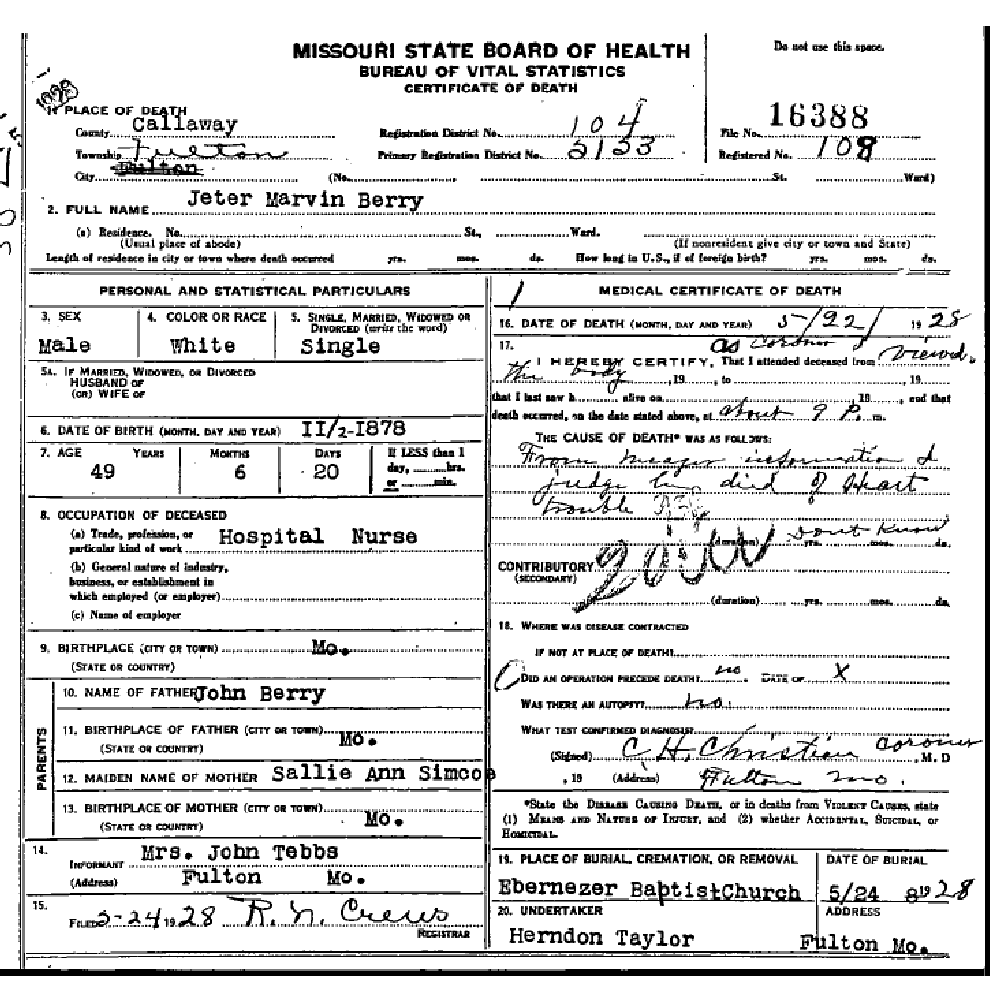 MISSOURI STATE BOARD OF HEALTH
BUREAU OF VITAL STATISTICS
CERTIFICATE OF DEATH
Do not use this space.
1. PLACE OF DEATH
County Callaway
Township Fulton
City Fulton (No. St. Ward)
Registration District No. 104
Primary Registration District No.
16388
File No.
Registered No. 108
2. FULL NAME Jeter Marvin Berry
(a) Residence. No. St., Ward.
(Usual place of abode) (If nonresident give city or town and State)
Length of residence in city or town where death occurred yrs. mos. ds. How long in U.S., if of foreign birth? yrs. mos. ds.
PERSONAL AND STATISTICAL PARTICULARS
3. SEX
Male
4. COLOR OR RACE
White
5. SINGLE, MARRIED, WIDOWED OR
DIVORCED (write the word)
Single
5A. IF MARRIED, WIDOWED, OR DIVORCED
HUSBAND OF
(OR) WIFE OF
6. DATE OF BIRTH (MONTH, DAY AND YEAR) II/2-I878
7. AGE YEARS MONTHS DAYS
49 6 20
If LESS than 1
day, hrs.
or min.
8. OCCUPATION OF DECEASED
(a) Trade, profession, or
particular kind of work Hospital Nurse
(b) General nature of industry,
business, or establishment in
which employed (or employer)
(c) Name of employer
9. BIRTHPLACE (CITY OR TOWN) Mo.
(STATE OR COUNTRY)
PARENTS
10. NAME OF FATHER John Berry
11. BIRTHPLACE OF FATHER (CITY OR TOWN)
(STATE OR COUNTRY) Mo.
12. MAIDEN NAME OF MOTHER Sallie Ann Simcoe
13. BIRTHPLACE OF MOTHER (CITY OR TOWN)
(STATE OR COUNTRY) Mo.
14.
INFORMANT Mrs. John Tebbs
(Address) Fulton Mo.
15.
FILED 5-24 1928 R. N. Crews
REGISTRAR
MEDICAL CERTIFICATE OF DEATH
16. DATE OF DEATH (MONTH, DAY AND YEAR) 5/22/ 1928
17. as Coroner
I HEREBY CERTIFY, That I attended deceased from viewed
the body, 19, to, 19
that I last saw h alive on, 19, and that
death occurred, on the date stated above, at about 9 P. m.
THE CAUSE OF DEATH* WAS AS FOLLOWS:
From meager information I
judge he died of Heart
trouble
(duration) Dont Know yrs. mos. ds.
CONTRIBUTORY
(SECONDARY)
(duration) yrs. mos. ds.
18. WHERE WAS DISEASE CONTRACTED
IF NOT AT PLACE OF DEATH?
DID AN OPERATION PRECEDE DEATH? no. DATE OF X
WAS THERE AN AUTOPSY? no.
WHAT TEST CONFIRMED DIAGNOSIS?
(Signed) C H. Christian Coroner M. D
, 19 (Address) Fulton Mo.
*State the DISEASE CAUSING DEATH, or in deaths from VIOLENT CAUSES, state
(1) MEANS AND NATURE OF INJURY, and (2) whether ACCIDENTAL, SUICIDAL, or
HOMICIDAL.
19. PLACE OF BURIAL, CREMATION, OR REMOVAL
Ebernezer BaptistChurch
DATE OF BURIAL
5/24 8 1928
20. UNDERTAKER
Herndon Taylor
ADDRESS
Fulton Mo.